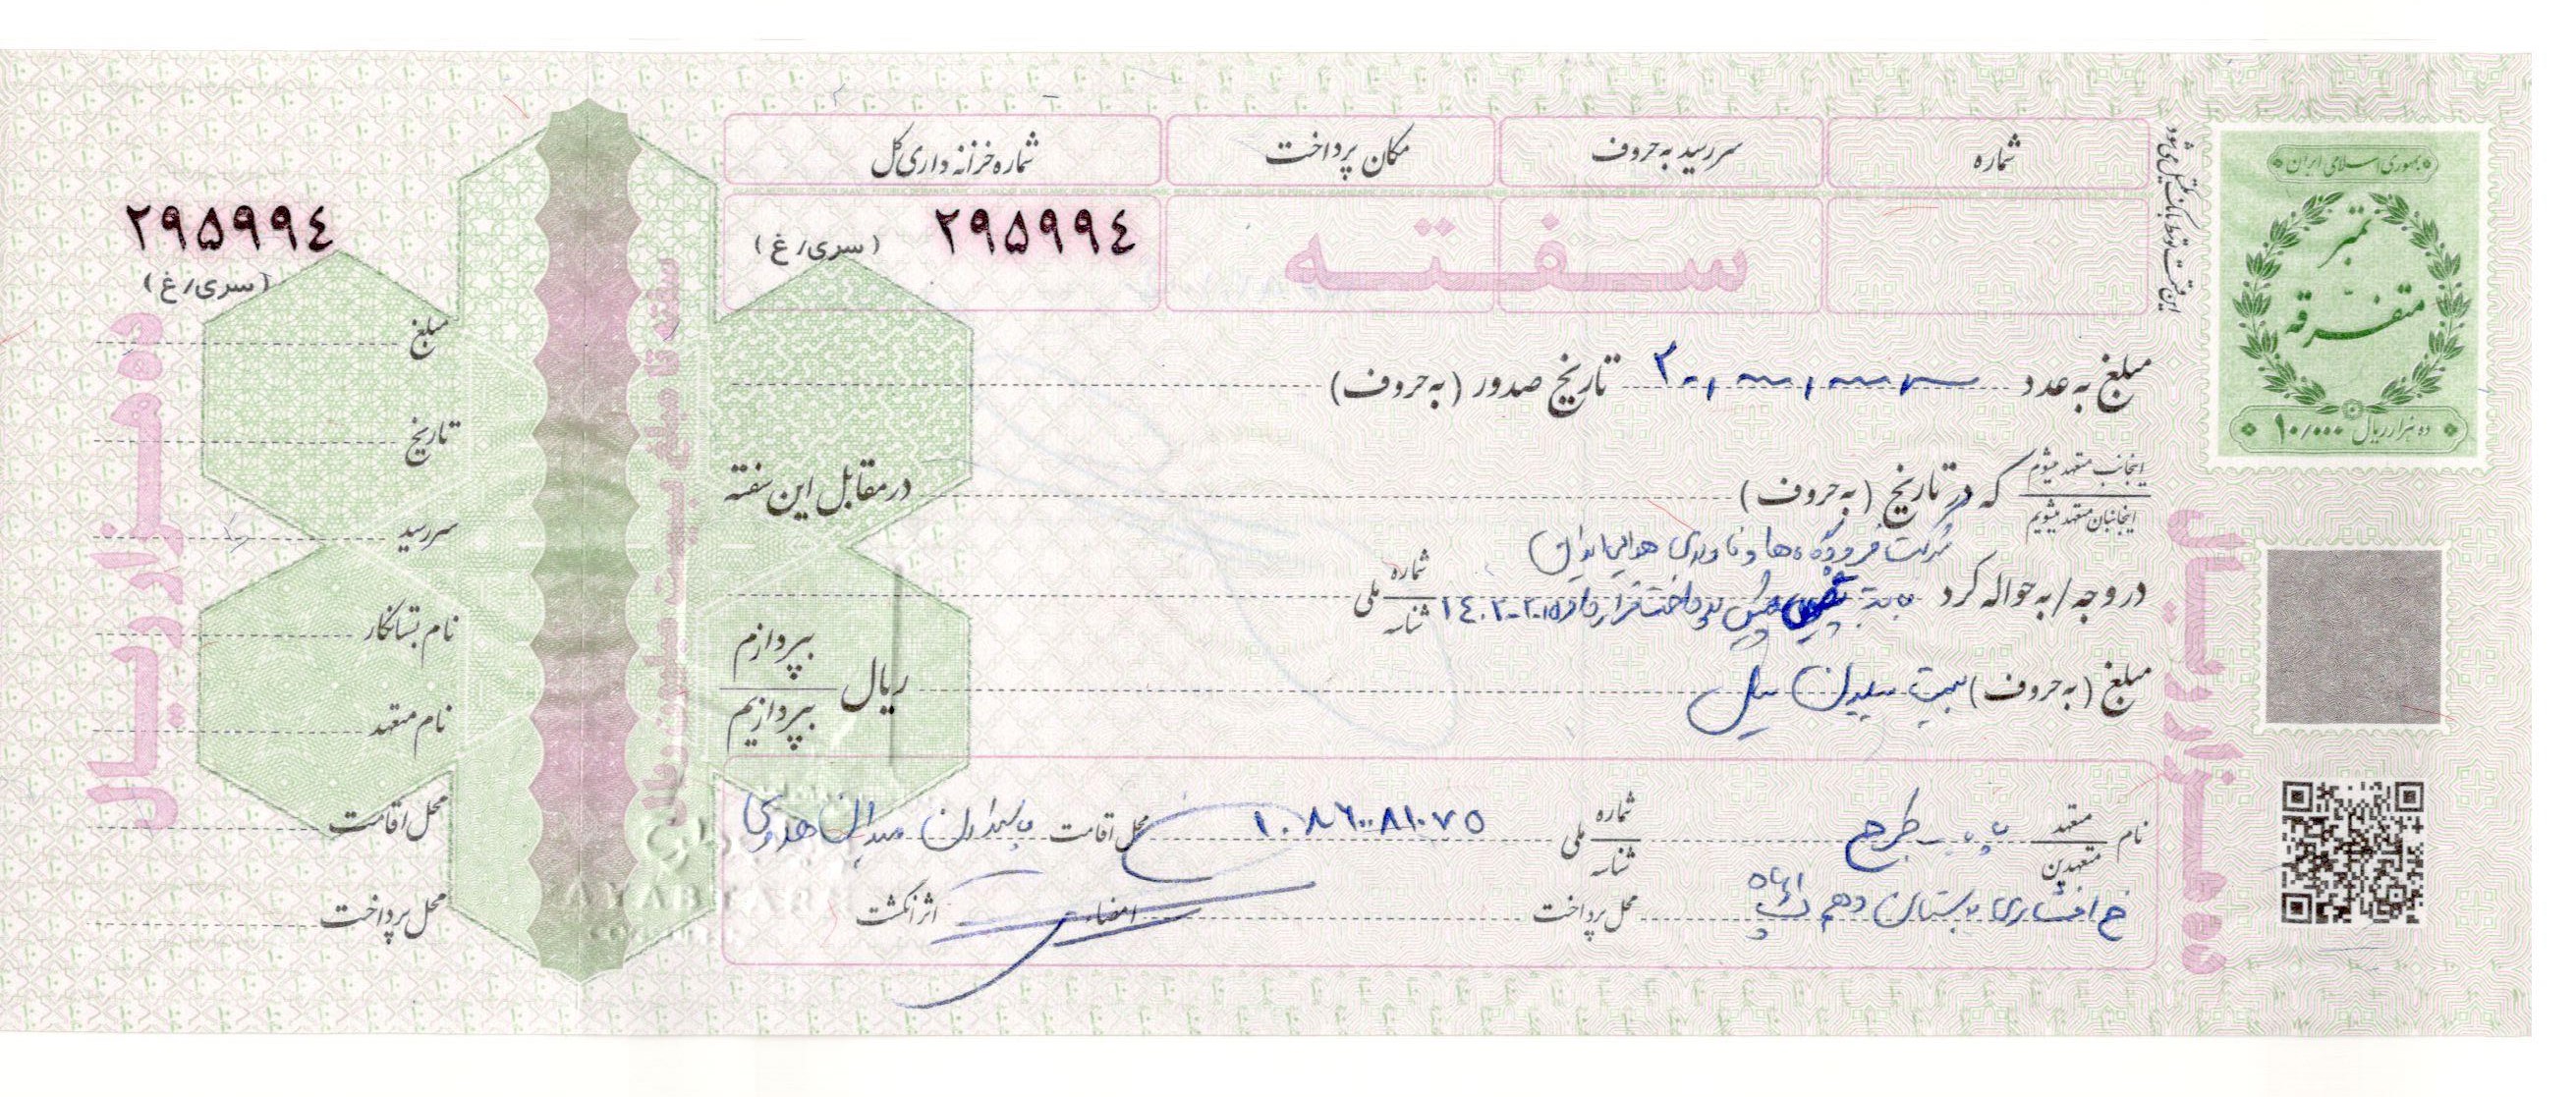 جمهوری اسلامی ایران
تمبر
متفرقه
ده هزار ریال ۱۰/۰۰۰
این فقره سفته توسط بانک تکمیل می شود
شماره
سررسید به حروف
مکان پرداخت
شماره خزانه داری کل
سفته
۲۹۵۹۹۴
(سری/غ)
مبلغ به عدد ۲۰,۰۰۰,۰۰۰ تاریخ صدور (به حروف)
اینجانب متعهد میشوم
اینجانبان متعهد میشویم
که در تاریخ (به حروف) در مقابل این سفته
شرکت فرودگاه ها و ناوبری هوایی ایران
در وجه / به حواله کرد بابت پیش پرداخت قرارداد ۱۴۰۲-۲۰۱۵ شماره ملی
شناسه
مبلغ (به حروف) بیست میلیون ریال
بپردازم
بپردازیم
نام متعهد
متعهدین
طرح
شماره ملی
شناسه
۱۰۸۶۰۰۸۱۰۷۵
محل اقامت پاسداران میدان هروی
خ افشاری بوستان دهم
محل پرداخت
امضاء
اثر انگشت
سفته تا مبلغ بیست میلیون ریال
ده هزار ریال
۲۹۵۹۹۴
(سری/غ)
مبلغ
تاریخ
سررسید
نام بستانکار
نام متعهد
محل اقامت
محل پرداخت
ده هزار ریال